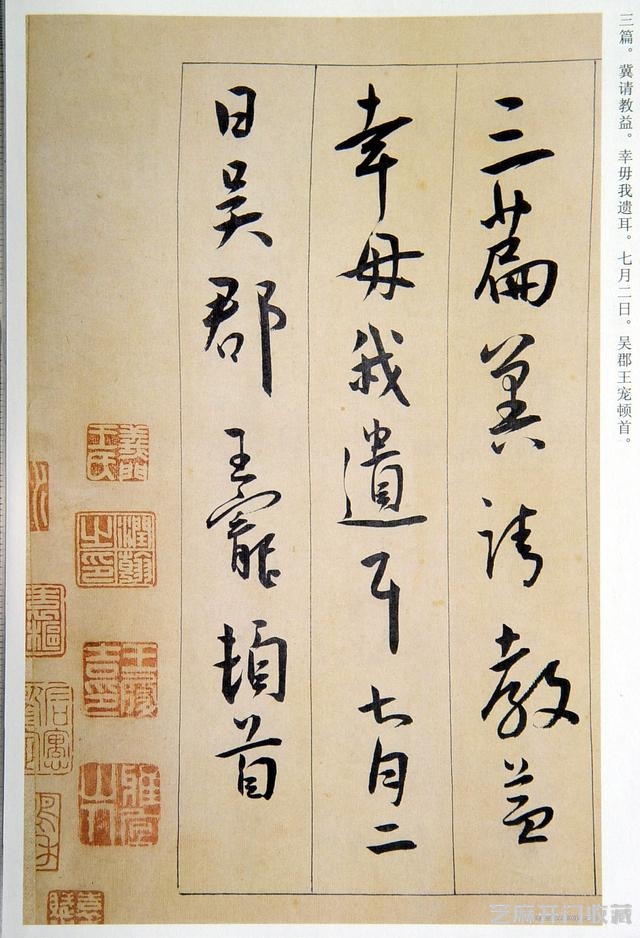 三篇冀请教益
幸毋我遺耳七月二
日吴郡王寵頓首
三篇。冀请教益。幸毋我遗耳。七月二日。吴郡王宠顿首。
芝麻开门收藏